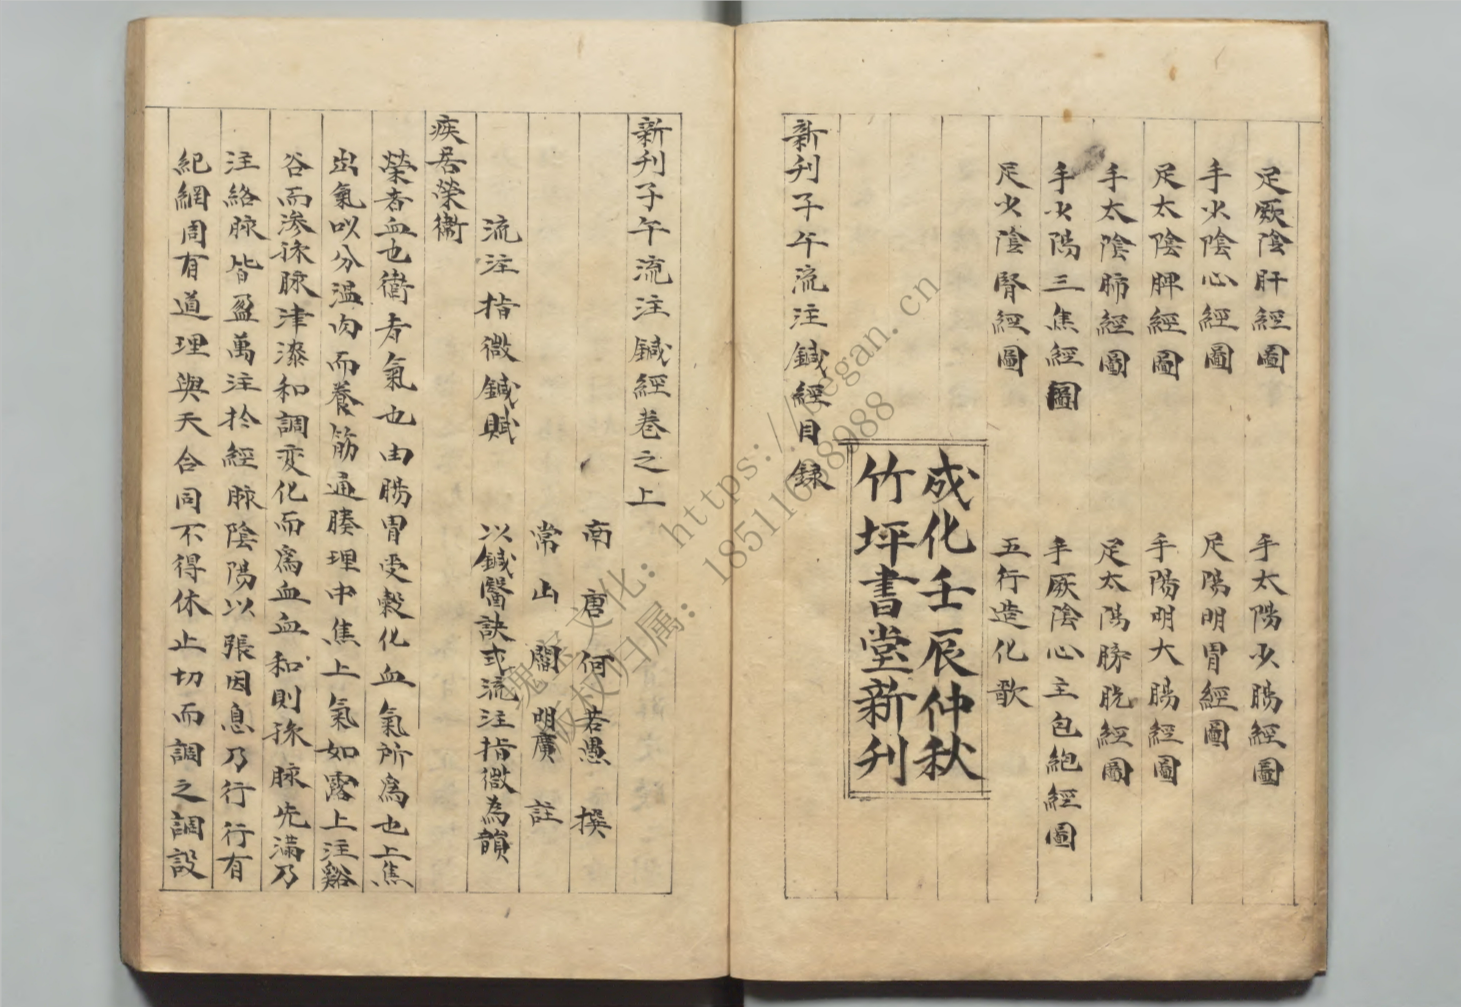 足厥陰肝經圖
手太陽小腸經圖
手少陰心經圖
足陽明胃經圖
足太陰脾經圖
手陽明大腸經圖
手太陰肺經圖
足太陽膀胱經圖
手少陽三焦經圖
手厥陰心主包絡經圖
足少陰腎經圖
五行造化歌
成化壬辰仲秋
竹坪書堂新刊
新刊子午流注鍼經目録
新刊子午流注鍼經卷之上
南唐何若愚撰
常山閻明廣註
流注指微鍼賦
以鍼醫訣式流注指微為韻
疾居榮衞
榮者血也衞者氣也由腸胃受穀化血氣所為也上焦
出氣以分温肉而養筋通腠理中焦上氣如露上注谿
谷而滲孫脉津液和調変化而爲血血和則孫脉先滿乃
注絡脉皆盈萬注於經脉陰陽以張因息乃行行有
紀綱周有道理與天合同不得休止切而調之調設
https://began.cn
瑰宝文化:
版权归属: 18511698988